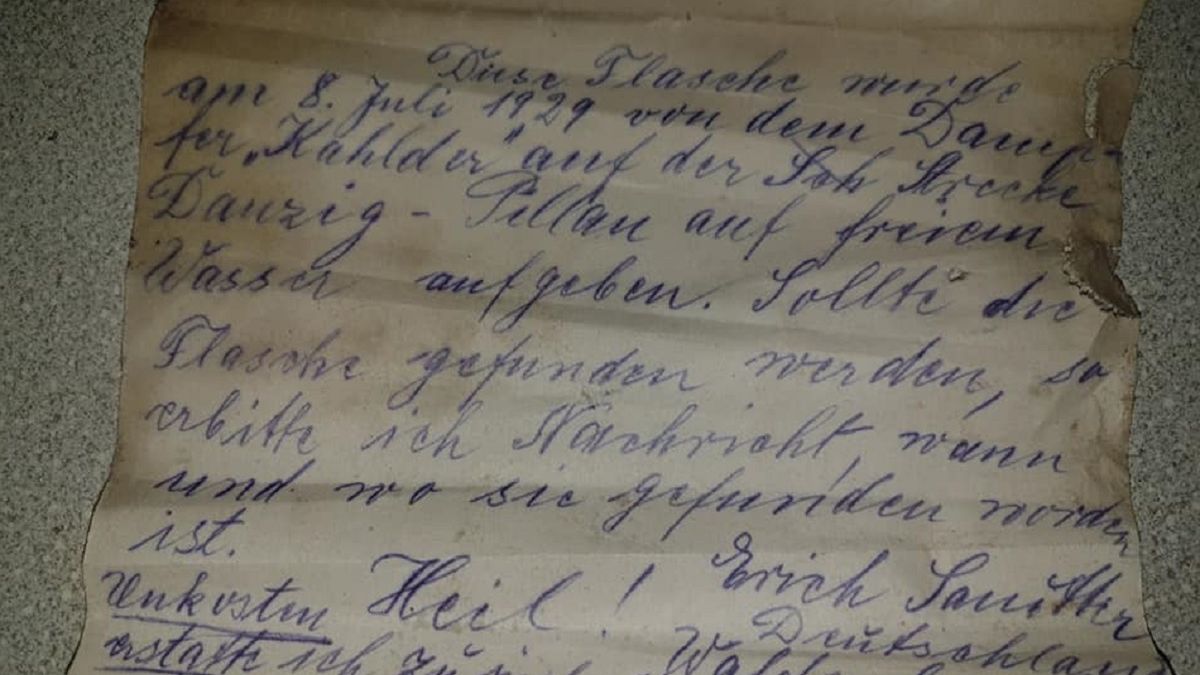 Diese Flasche wurde
am 8. Juli 1929 von dem Damp-
fer „Kahlder" auf der Strecke
Danzig - Pillau auf freiem
Wasser aufgeben. Sollte die
Flasche gefunden werden, so
erbitte ich Nachricht, wann
und wo sie gefunden worden
ist.
Heil! Erich
Unkosten Deutschland
erstatte ich